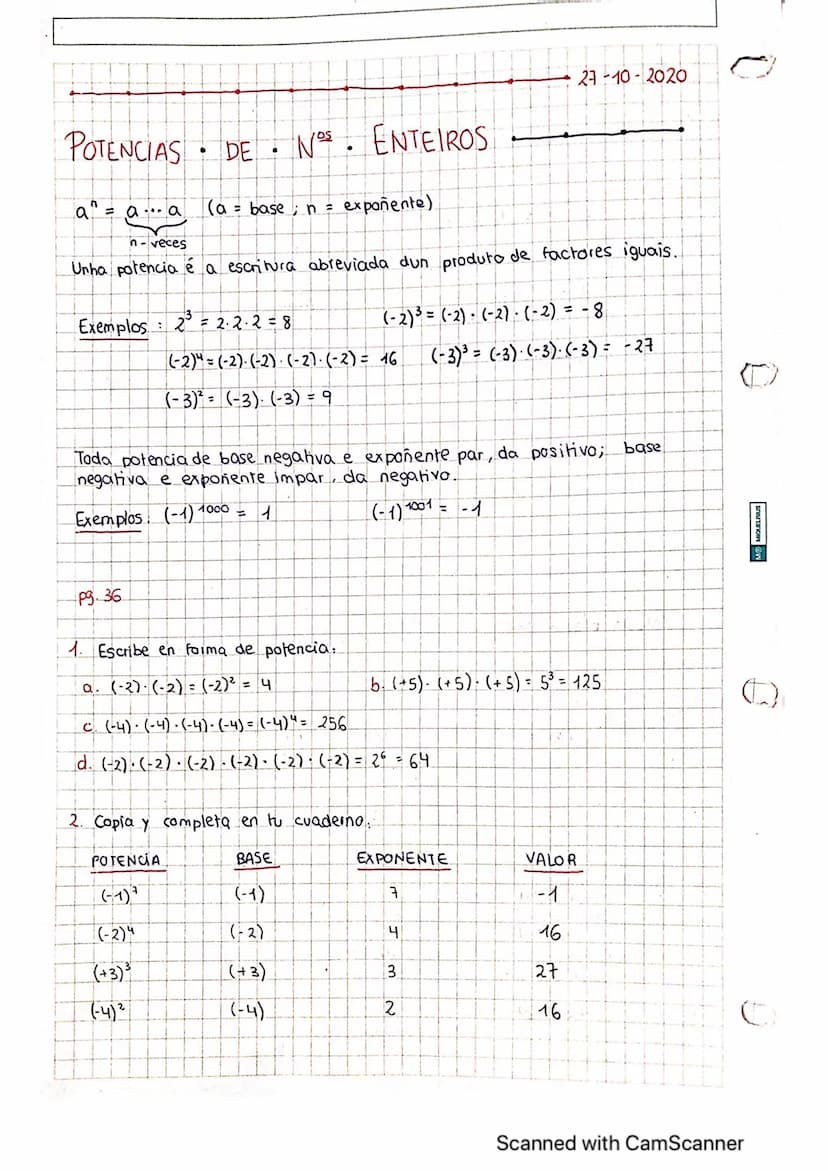 27-10-2020
POTENCIAS · DE · Nos · ENTEIROS
aⁿ = a ... a (a = base ; n = expoñente)
n-veces
Unha potencia é a escritura abreviada dun produto de factores iguais.
Exemplos : 2³ = 2·2·2 = 8 (-2)³ = (-2)·(-2)·(-2) = -8
(-2)⁴ = (-2)·(-2)·(-2)·(-2) = 16 (-3)³ = (-3)·(-3)·(-3) = -27
(-3)² = (-3)·(-3) = 9
Toda potencia de base negativa e expoñente par, da positivo; base
negativa e expoñente impar, da negativo.
Exemplos: (-1)¹⁰⁰⁰ = 1 (-1)¹⁰⁰¹ = -1
MIQUELRIUS
pg. 36
1. Escribe en forma de potencia:
a. (-2)·(-2) = (-2)² = 4 b. (+5)·(+5)·(+5) = 5³ = 125
c. (-4)·(-4)·(-4)·(-4) = (-4)⁴ = 256
d. (-2)·(-2)·(-2)·(-2)·(-2)·(-2) = 2⁶ = 64
2. Copia y completa en tu cuaderno:
POTENCIA BASE EXPONENTE VALOR
(-1)⁷ (-1) 7 -1
(-2)⁴ (-2) 4 16
(+3)³ (+3) 3 27
(-4)² (-4) 2 16
Scanned with CamScanner